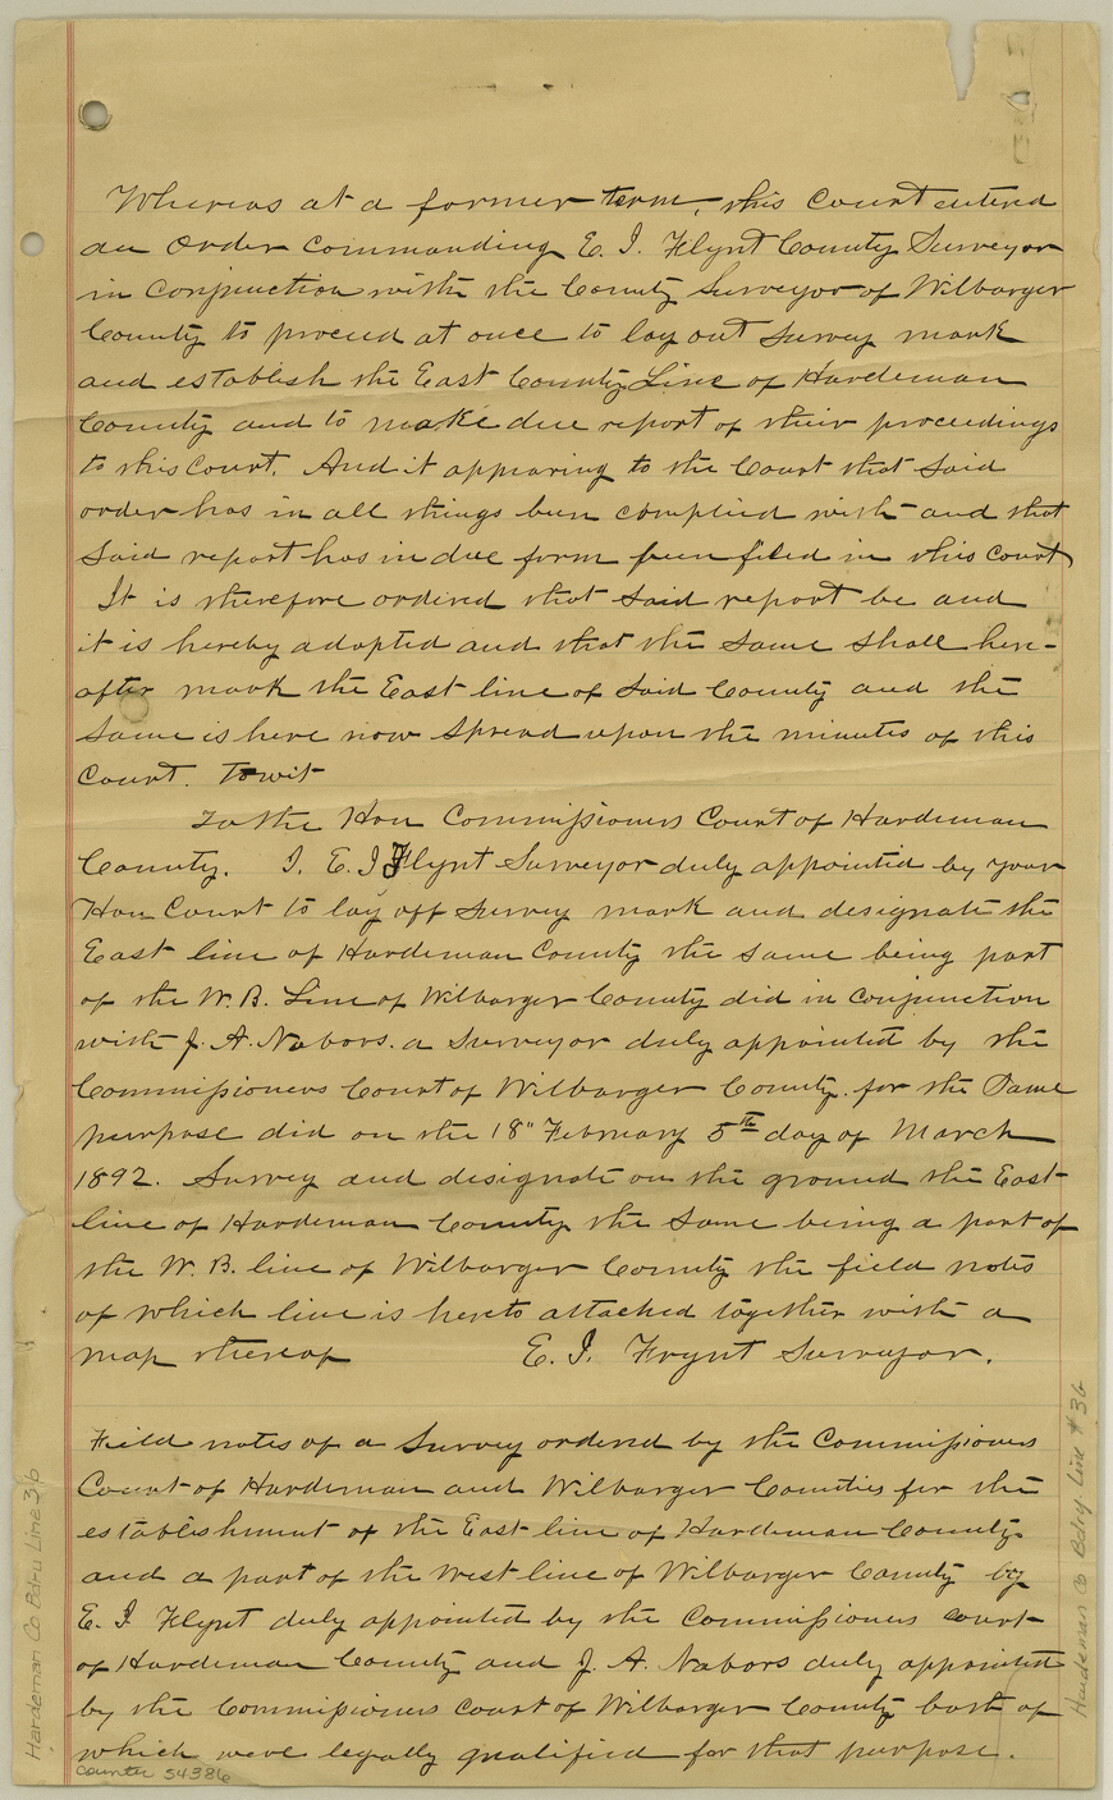 Whereas at a former term, this Court entered
an order commanding E. I. Flynt County Surveyor
in conjunction with the County Surveyor of Wilbarger
County to proceed at once to lay out survey mark
and establish the East County Line of Hardeman
County and to make due report of their proceedings
to this Court. And it appearing to the Court that said
order has in all things been complied with and that
said report has in due form been filed in this Court
It is therefore ordered that said report be and
it is hereby adopted and that the same shall here-
after mark the East line of said County and the
same is here now spread upon the minutes of this
Court. Towit
To the Hon Commissioners Court of Hardeman
County. I. E. I Flynt Surveyor duly appointed by your
Hon Court to lay off survey mark and designate the
East line of Hardeman County the same being part
of the W. B. Line of Wilbarger County did in conjunction
with J. A. Nabors. a surveyor duly appointed by the
Commissioners Court of Wilbarger County. for the Same
purpose did on the 18" February 5th day of March
1892. Survey and designate on the ground the East
line of Hardeman County the same being a part of
the W. B. line of Wilbarger County the field notes
of which line is hereto attached together with a
map thereof E. I. Frynt Surveyor.
Field notes of a survey ordered by the Commissioners
Court of Hardeman and Wilbarger Counties for the
establishment of the East line of Hardeman County
and a part of the West line of Wilbarger County by
E. I Flynt duly appointed by the Commissioners court
of Hardeman County and J. A. Nabors duly appointed
by the Commissioners Court of Wilbarger County both of
which were legally qualified for that purpose.
counter 54386
Hardeman Co Bdry Line 36
Hardeman Co Bdry. Line # 36